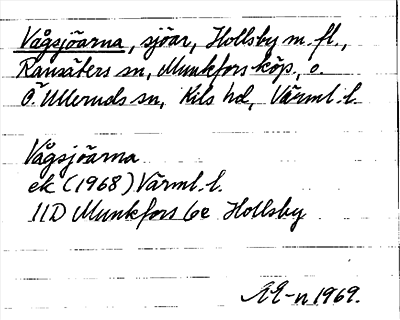 Vågsjöarna, sjöar, Hollsby m. fl.,
Ransäters sn, Munkfors köp. o.
Ö. Ulleruds sn, Kils hd, Värml. l.
Vågsjöarna
ek (1968) Värml. l.
11D Munkfors 6e Hollsby
1969.